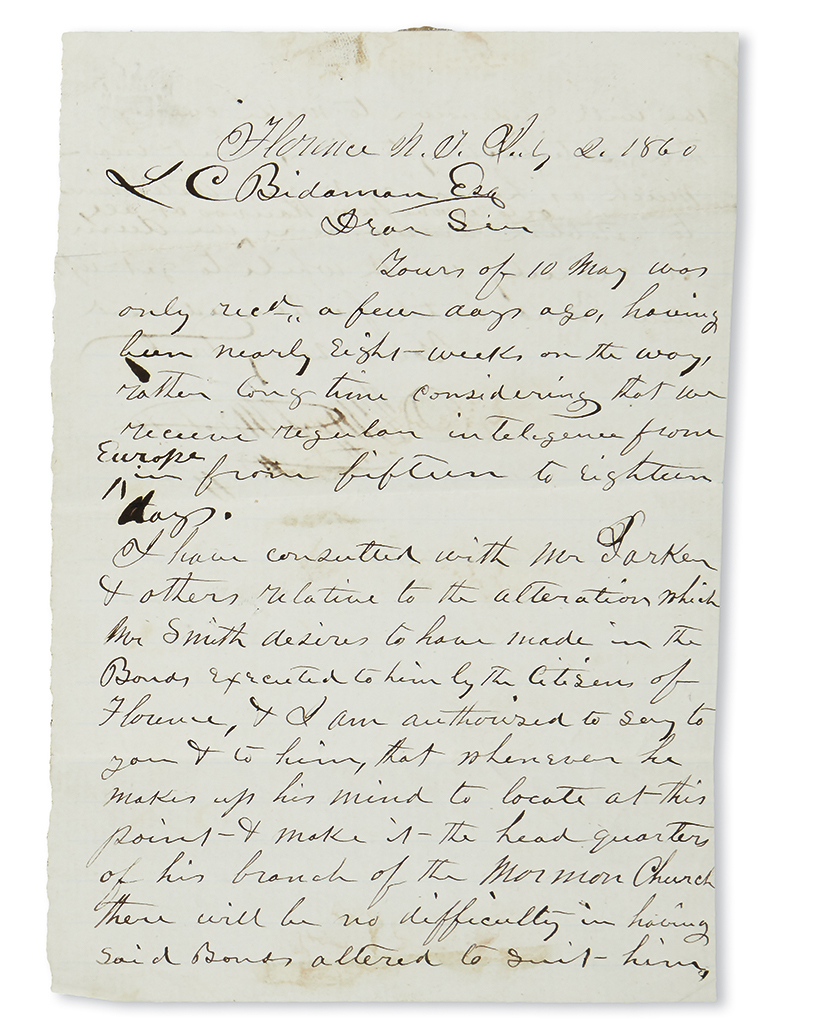 Florence N. T. July 2. 1860
L C Bidamon Esq
Dear Sir
Yours of 10 May was
only recd,, a few days ago, having
been nearly Eight-weeks on the way,
rather long time considering that we
receive regular inteligence from
Europe
in from fifteen to Eighteen
days.
I have consulted with Mr Parker
& others relative to the alteration which
Mr Smith desires to have made in the
Bonds executed to him by the Citizens of
Florence, & I am authorised to say to
you & to him, that whenever he
makes up his mind to locate at this
point & make it the head quarters
of his branch of the Mormon Church
there will be no difficulty in having
said Bonds altered to suit him,